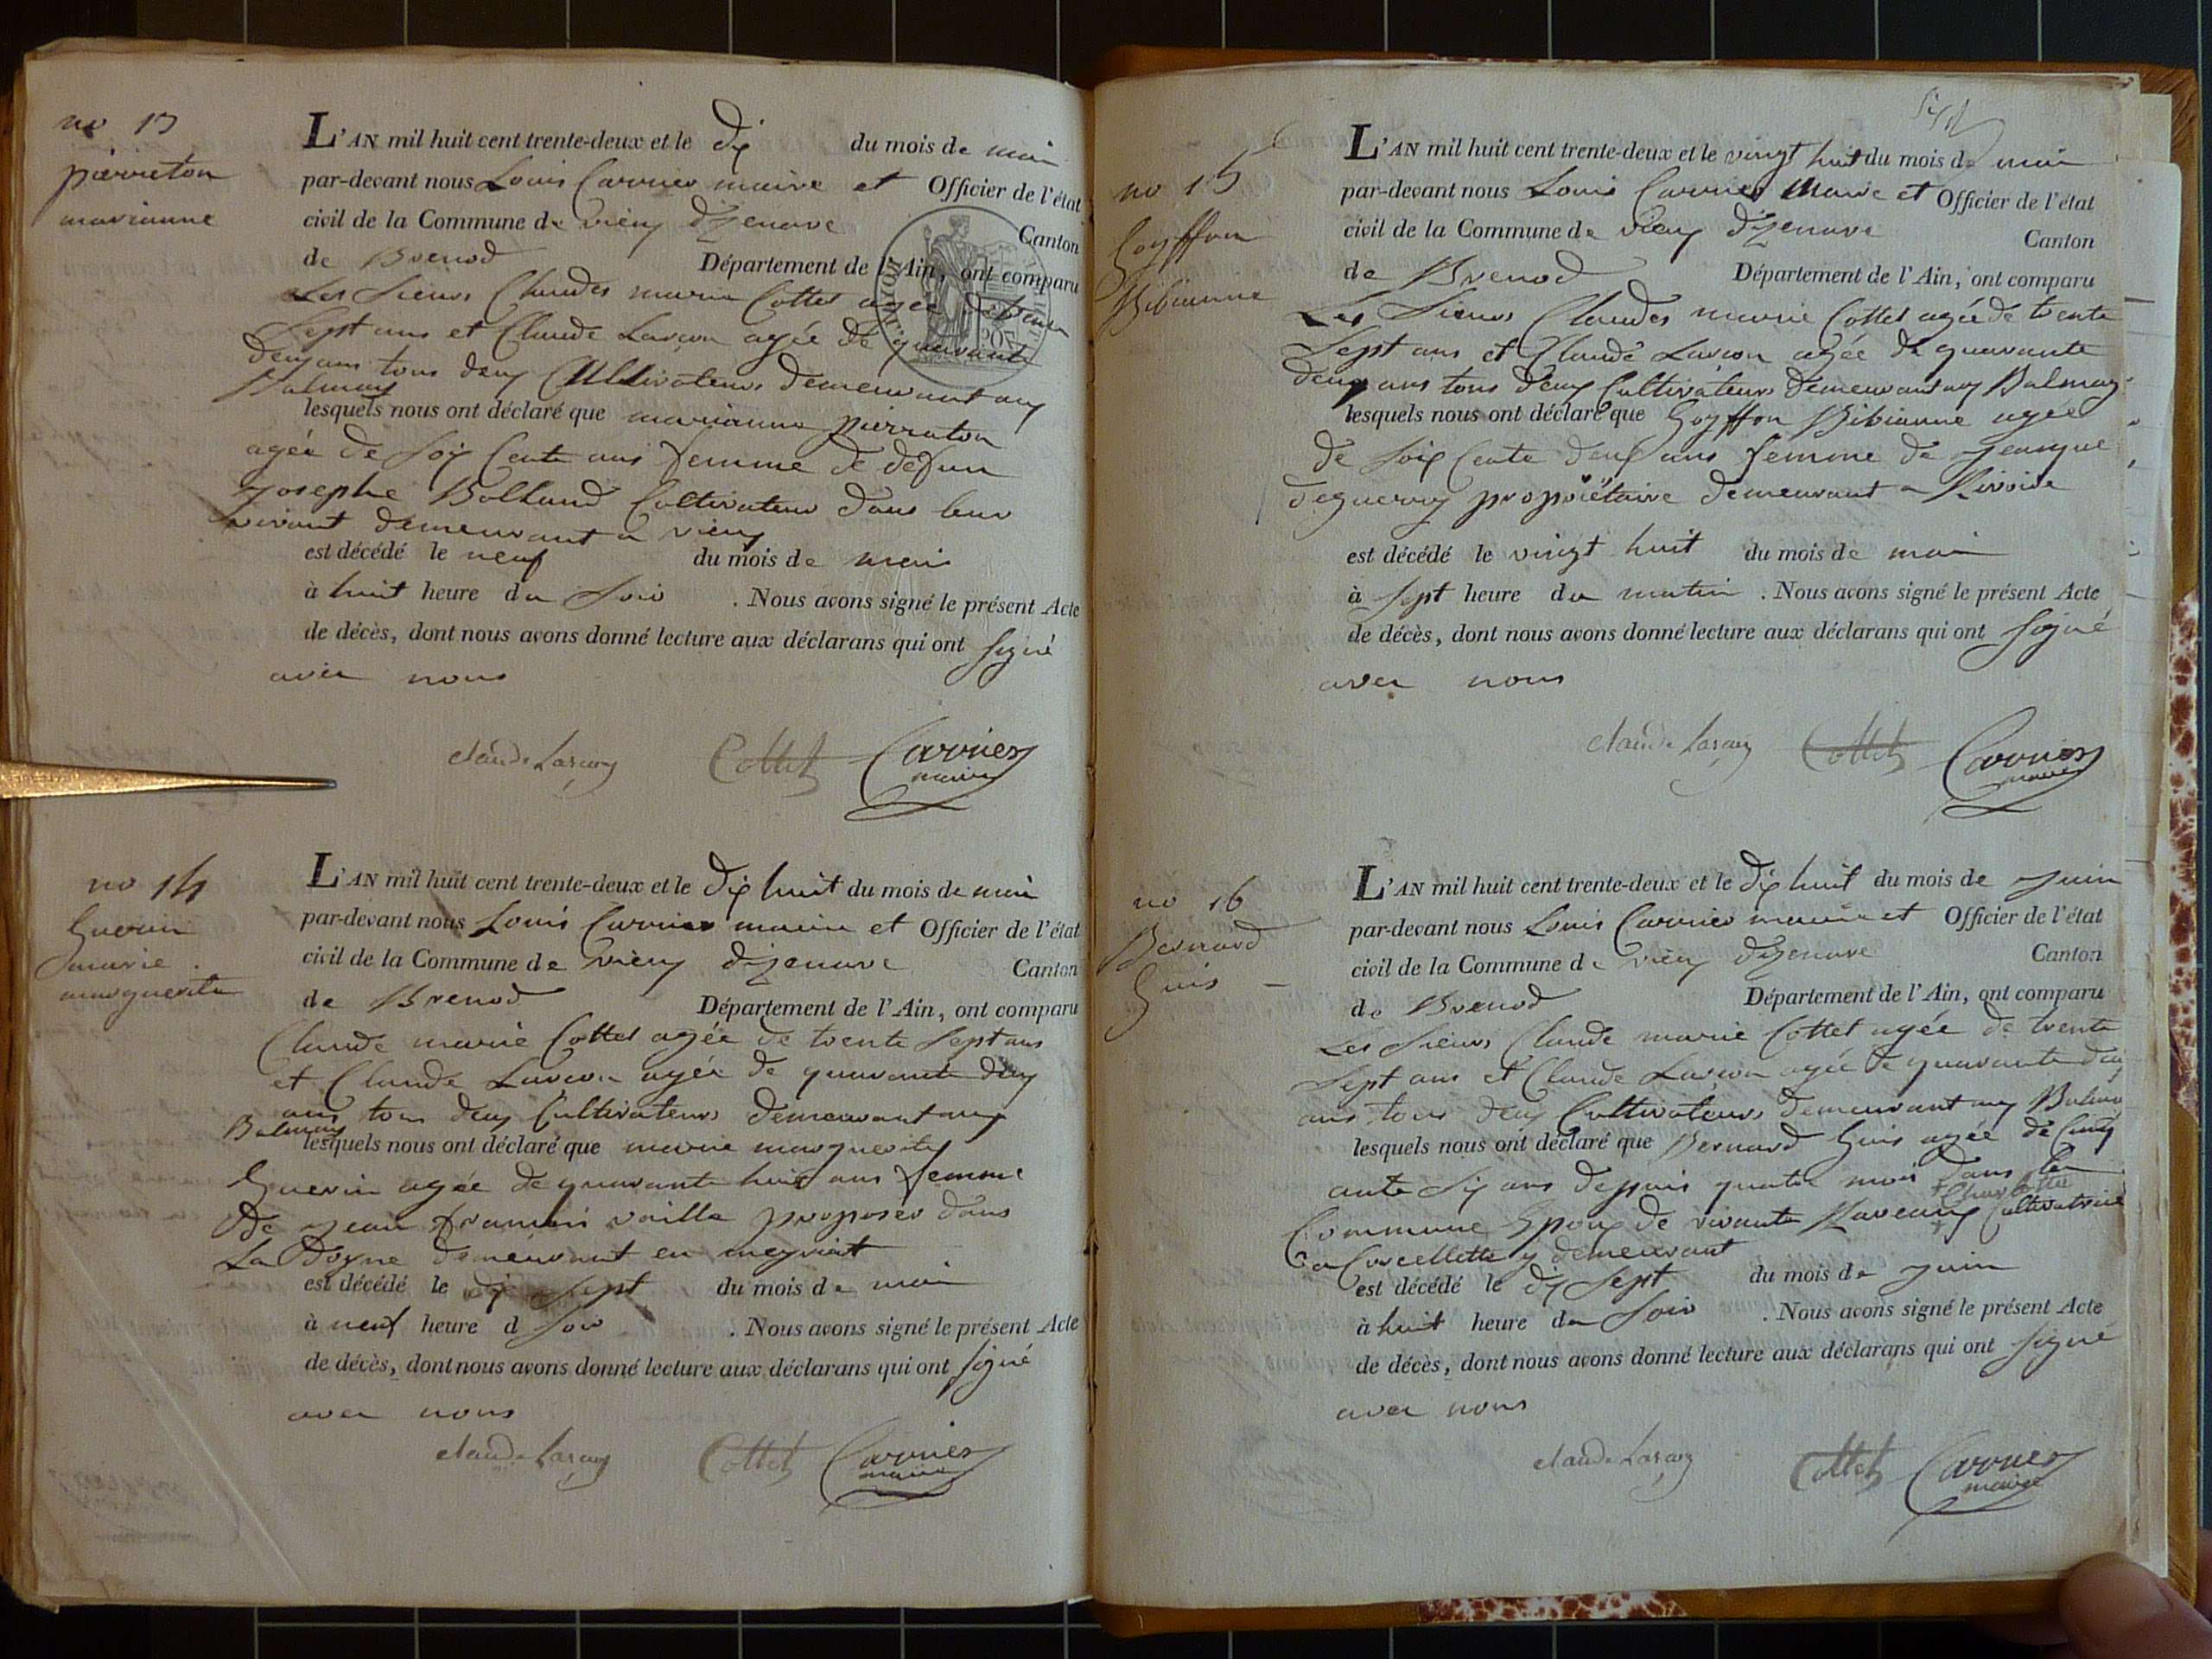 no 13
pierreton
marianne
L'AN mil huit cent trente-deux et le dix du mois de mai
par-devant nous Louis Carrier maire et Officier de l'état
civil de la Commune de vieux dizenave Canton
de Brenod Département de l'Ain, ont comparu
Les Sieurs Claudes marie Cottet agée de trente
Sept ans et Claude Laracon agée de quarante
deux ans tous deux Cultivateurs demeurant aux
Balmay
lesquels nous ont déclaré que marianne pierreton
agée de Soix Cente ans femme de défun
Josephe Bolland Cultivateur dans leur
vivant demeurant a vieux
est décédé le neuf du mois de mai
à huit heure du Soir . Nous avons signé le présent Acte
de décès, dont nous avons donné lecture aux déclarans qui ont signé
avec nous
Cottet Carrier
maire
no 14
Guerin
marie
marguerite
L'AN mil huit cent trente-deux et le dix huit du mois de mai
par-devant nous Louis Carrier maire et Officier de l'état
civil de la Commune de vieux dizenave Canton
de Brenod Département de l'Ain, ont comparu
Claude marie Cottet agée de trente Sept ans
et Claude Laracon agée de quarante deux
ans tous deux Cultivateurs demeurant aux
Balmay
lesquels nous ont déclaré que marie marguerite
Guerin agée de quarante huit ans femme
de Jean francois vaille proposer dans
La Doyne demeurant en meyriat
est décédé le dix Sept du mois de mai
à neuf heure d Soir . Nous avons signé le présent Acte
de décès, dont nous avons donné lecture aux déclarans qui ont signé
avec nous
Cottet Carrier
maire
no 15
Goyffon
Bibianne
L'AN mil huit cent trente-deux et le vingt huit du mois de mai
par-devant nous Louis Carrier Maire et Officier de l'état
civil de la Commune de vieux dizenave Canton
de Brenod Département de l'Ain, ont comparu
Les Sieurs Claudes marie Cottet agée de trente
Sept ans et Claude Laracon agée de quarante
deux ans tous deux Cultivateurs demeurant aux Balmay
lesquels nous ont déclaré que Goyffon Bibianne agée
de Soix Cente deux ans femme de Jeanque
deguerry propriétaire demeurant a Rivoire
est décédé le vingt huit du mois de mai
à sept heure du matin . Nous avons signé le présent Acte
de décès, dont nous avons donné lecture aux déclarans qui ont signé
avec nous
Cottet Carrier
maire
no 16
Bernard
Guis
L'AN mil huit cent trente-deux et le dix huit du mois de Juin
par-devant nous Louis Carrier maire et Officier de l'état
civil de la Commune de vieux dizenave Canton
de Brenod Département de l'Ain, ont comparu
Les Sieurs Claude marie Cottet agée de trente
Sept ans et Claude Laracon agée de quarante deux
ans tous deux Cultivateurs demeurant aux Balmay
lesquels nous ont déclaré que Bernard Guis agée de Cinq
ante Six ans deppuis quatre mois dans la
Commune Epoux de vivante Cultivatrice
a Corcellette y demeurant
est décédé le dix Sept du mois de Juin
à huit heure du Soir . Nous avons signé le présent Acte
de décès, dont nous avons donné lecture aux déclarans qui ont signé
avec nous
Cottet Carrier
maire